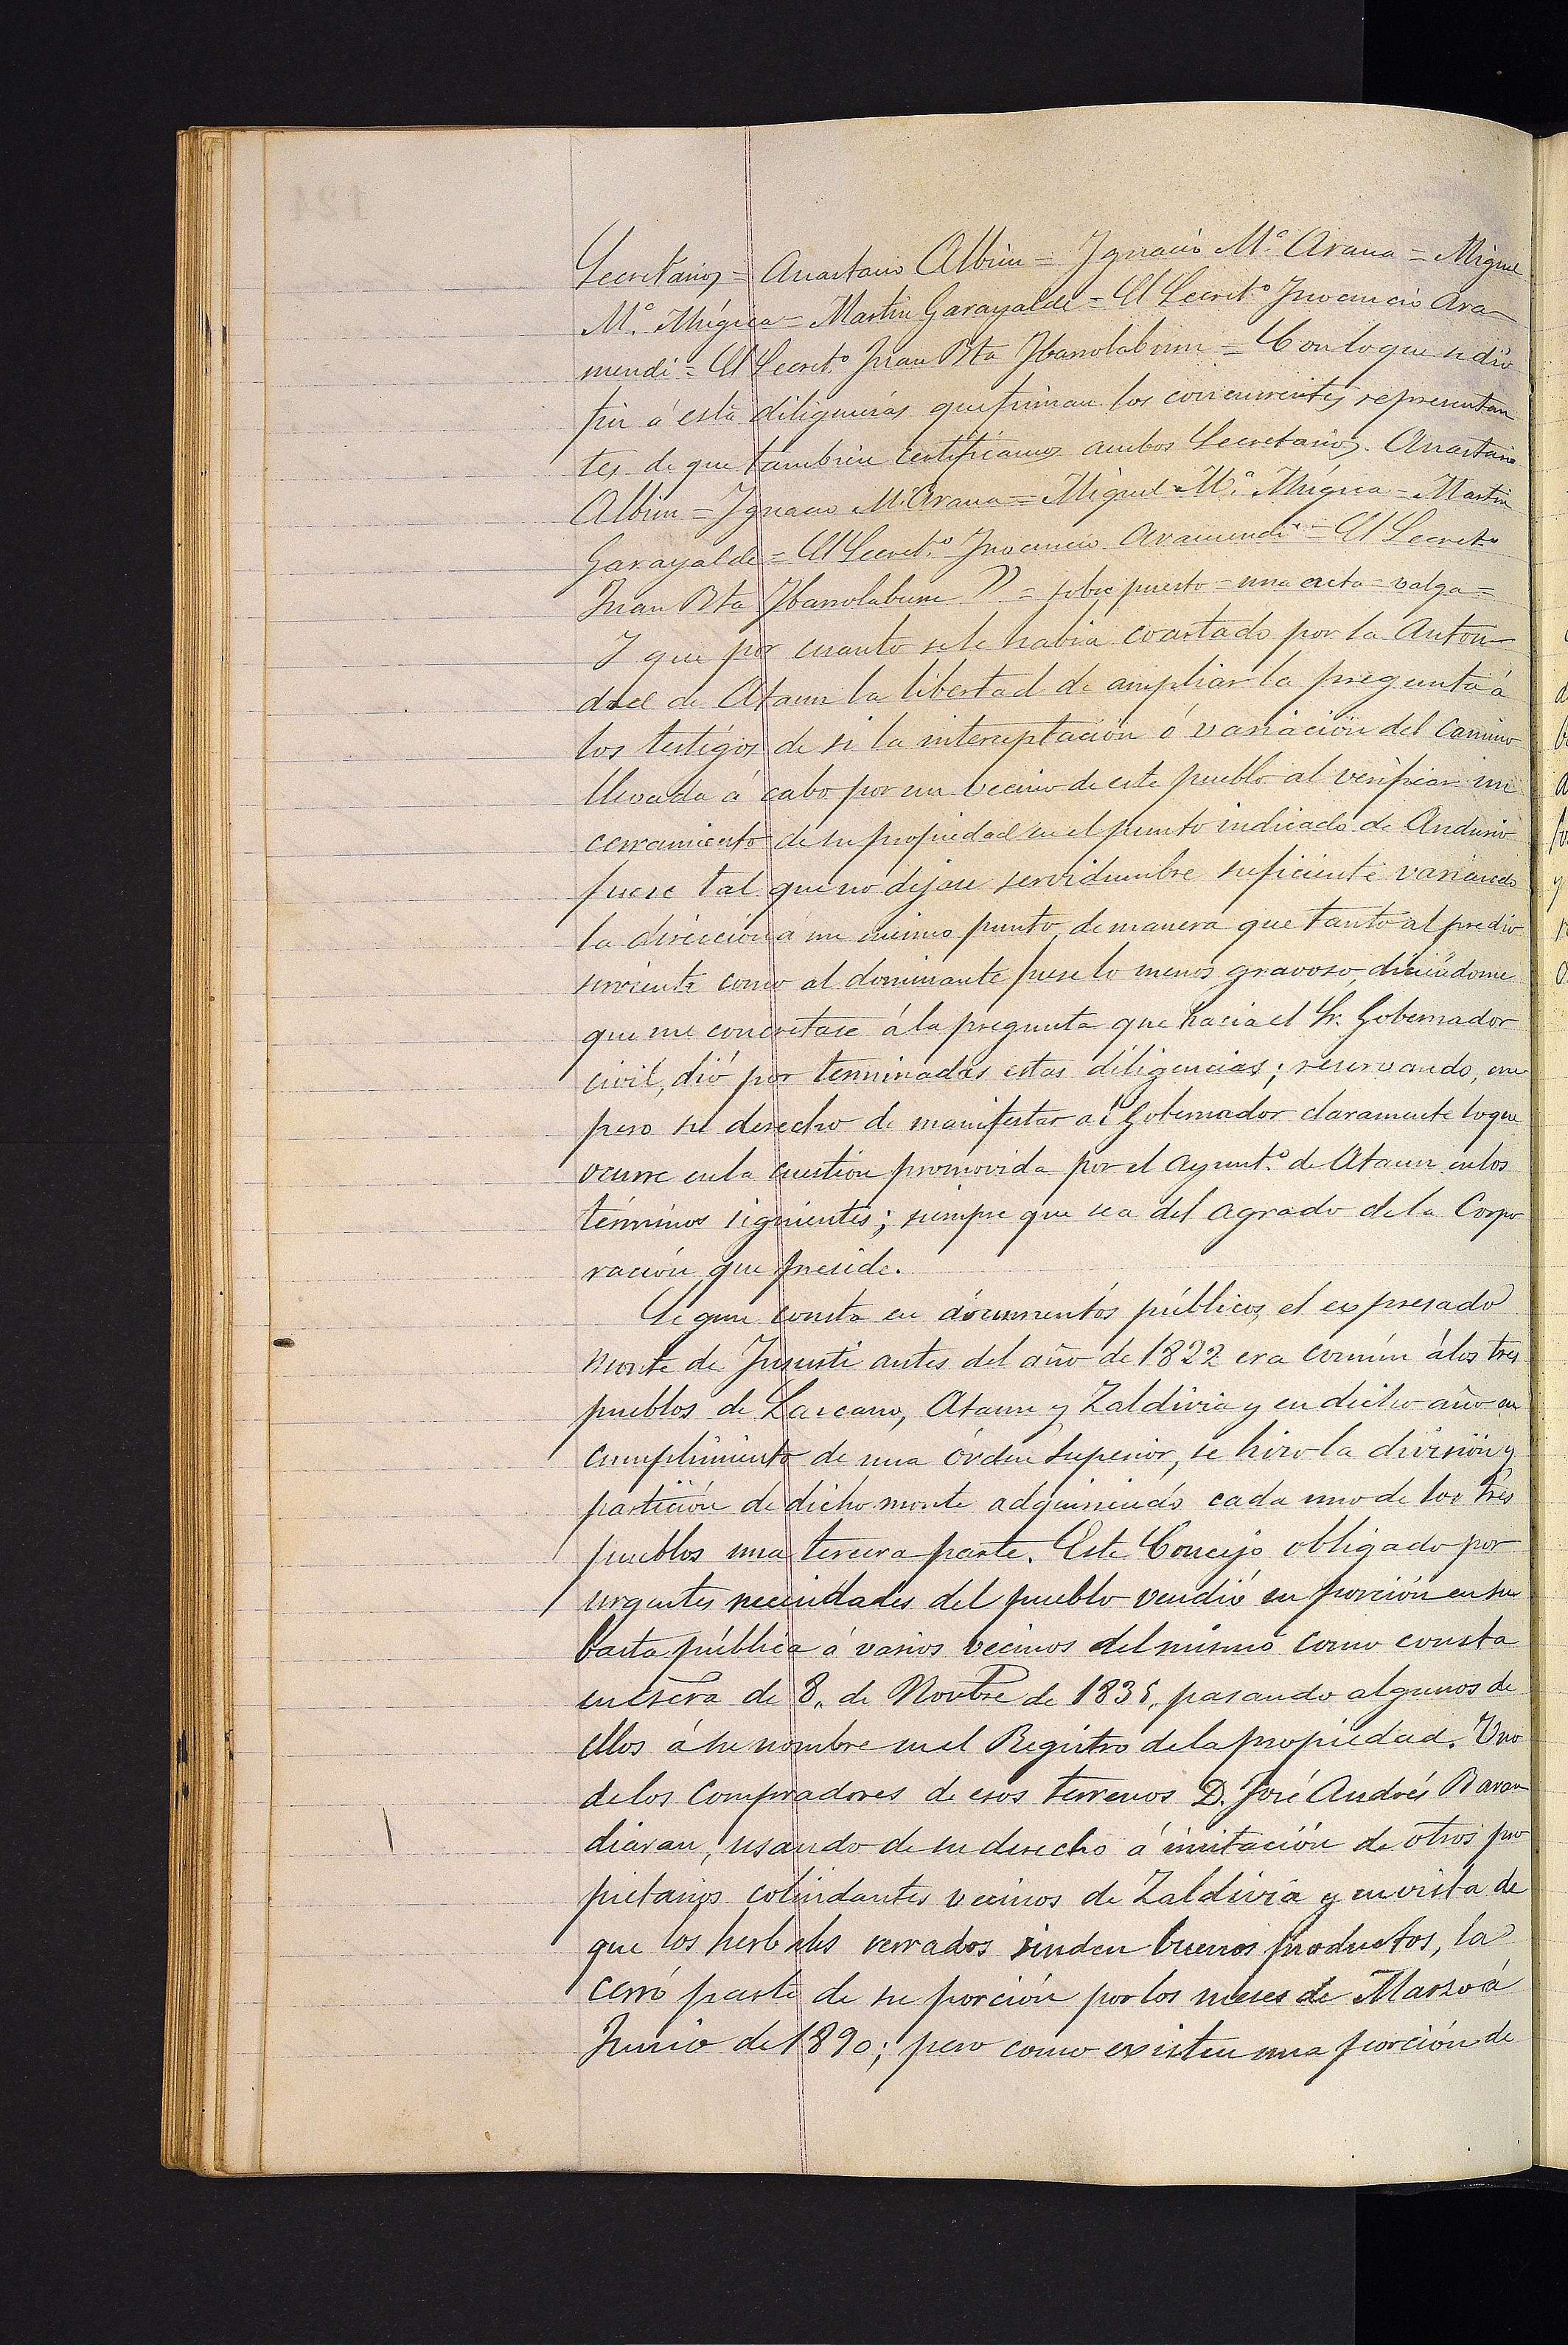 Secretarios = Anastasio Albisu = Ygnacio M.ª Arana = Miguel
M.ª Múgica = Martin Garayalde = El Secret.º Ynocencio Ara
mendi = El Secret.º Juan Bta Ybarrolaburu = Con lo que se dió
fin á esta diligencias que firman los concurrentes representan
tes de que tambien certificamos ambos Secretarios. Anastasio
Albisu = Ygnacio M.ª Arana = Miguel M.ª Múgica = Martin
Garayalde = El Secret.º Ynocencio Aramendi = El Secret.º
Juan Bta Ybarrolaburu " = sobre puesto = una acta = valga =
Y que por cuanto se le habia coartado por la Autori
dad de Ataun la libertad de ampliar la pregunta á
los testigos de si la interuptación ó variación del camino
llevada á cabo por un vecino de este pueblo al verificar un
cerramiento de su propiedad en el punto indicado de
fuese tal que no dejase servidumbre suficiente variando
la dirección á un mismo punto, de manera que tanto al predio
sirviente como al dominante fuese lo menos gravoso, diciéndome
que me concretase á la pregunta que hacia el Sr. Gobernador
civil, dió por terminadas estas diligencias; reservando, em
pero su derecho de manifestar al Gobernador claramente lo que
ocurre en la cuestión promovida por el ayunt.º de Ataun en los
términos siguientes; siempre que sea del agrado de la Corpo
ración que preside.
Segun consta en documentos públicos, el expresado
monte de Jususti antes del año de 1822 era común á los tres
pueblos de Lazcano, Ataun y Zaldivia y en dicho año en
cumplimiento de una órden superior, se hizo la división y
partición de dicho monte adquiriendo cada uno de los tres
pueblos una tercera parte. Este Concejo obligado por
urgentes necesidades del pueblo vendió su porción en su
basta pública á varios vecinos del mismo como consta
en escra de 8. de Novbre de 1835, pasando algunos de
ellos á su nombre en el Registro de la propiedad. Uno
de los compradores de esos terrenos D. José Andrés Baran
diaran, usando de su derecho á imitación de otros pro
pietarios colindantes vecinos de Zaldivia y en vista de
que los herbales cerrados rinden buenos productos, la
cerró parte de su porción por los meses de Marzo á
Junio de 1890; pero como existen una porción de